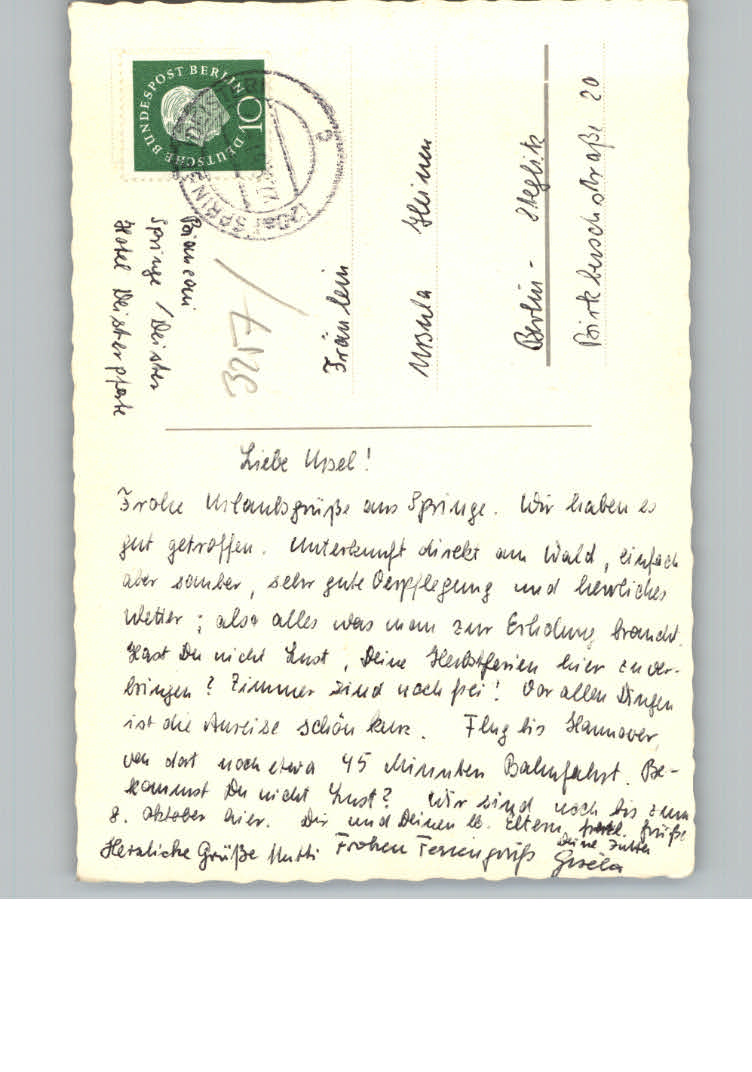 DEUTSCHE BUNDESPOST BERLIN
10
(20a) SPRINGE
Biancani
Springe / Deister
Hotel Deisterpforte
Fräulein
Ursula Heinen
Berlin - Steglitz
Birkbuschstraße 20
Liebe Ursel!
Frohe Urlaubsgrüße aus Springe. Wir haben es
gut getroffen. Unterkunft direkt am Wald, einfach
aber sauber, sehr gute Verpflegung und herrliches
Wetter; also alles was man zur Erholung braucht.
Hast Du nicht Lust, Deine Herbstferien hier zu ver-
bringen? Zimmer sind noch frei! Vor allen Dingen
ist die Anreise schön kurz. Flug bis Hannover,
von dort noch etwa 45 Minuten Bahnfahrt. Be-
kommst Du nicht Lust? Wir sind noch bis zum
8. Oktober hier. Dir und Deinen lb. Eltern herzl. Grüße
Deine Jutta
Herzliche Grüße Mutti Frohen Feriengruß Gisela